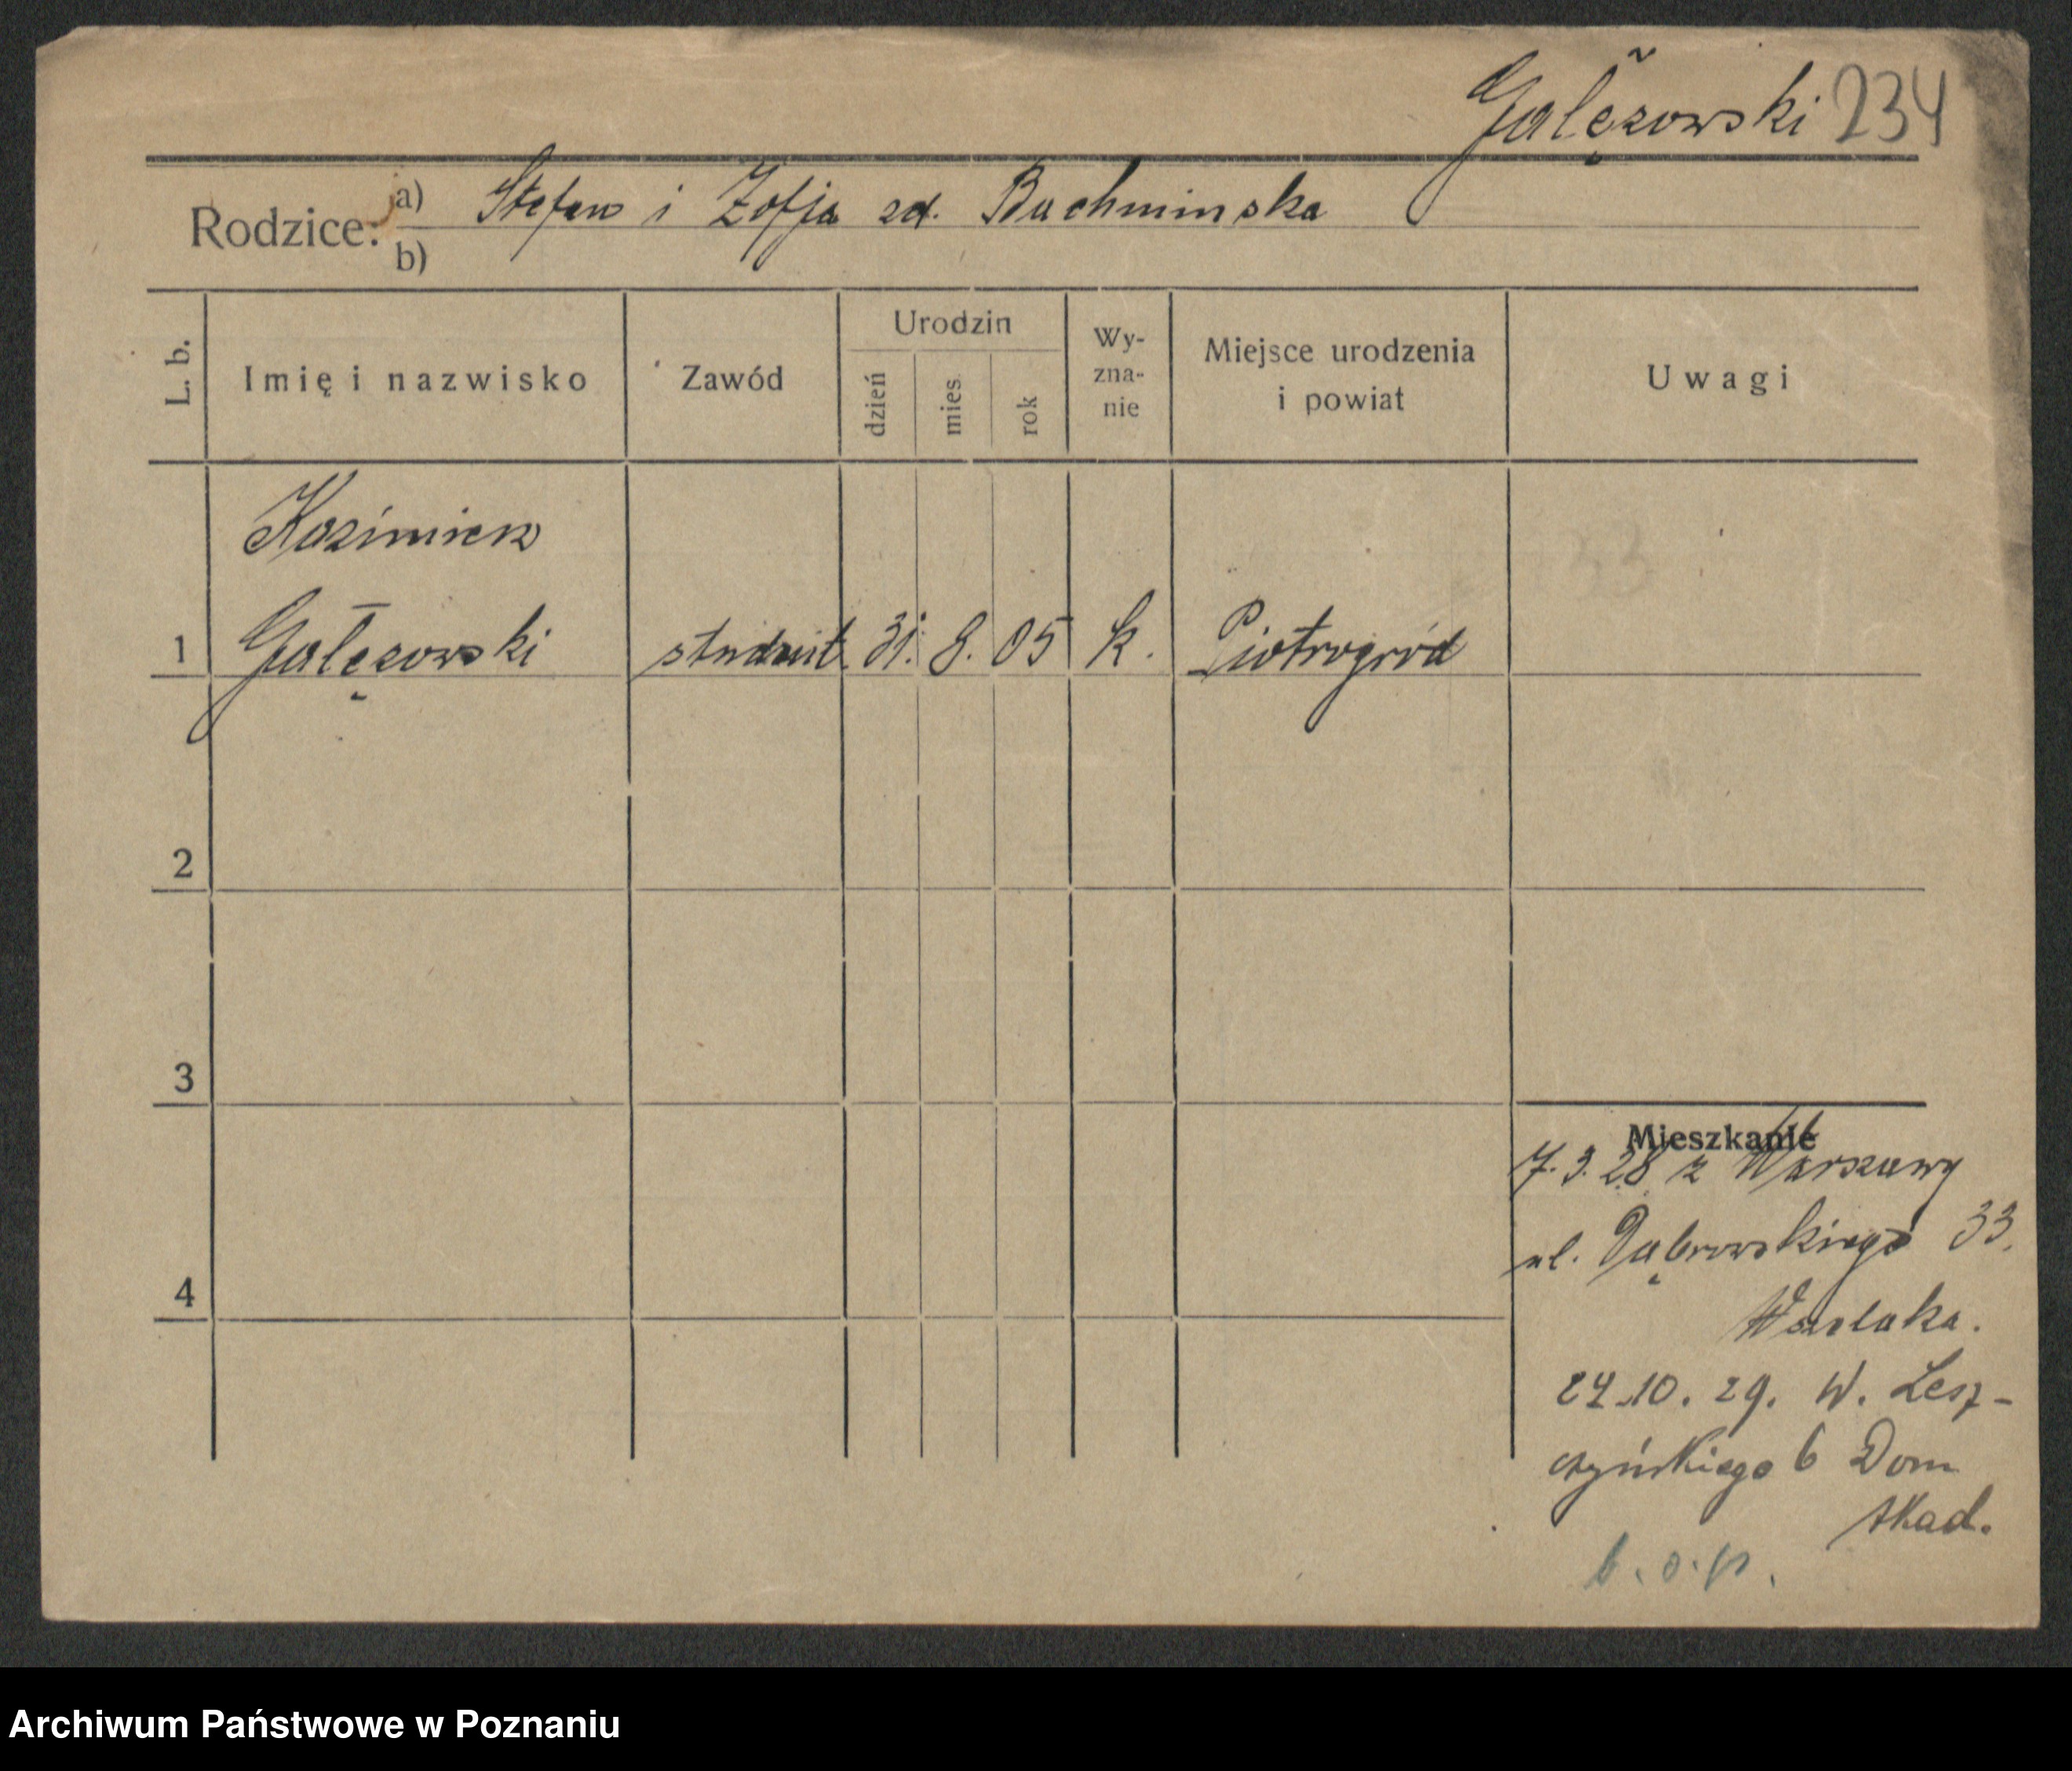 Gałęzowski 234
Rodzice: a) Stefan i Zofja zd. Buchminska
b)
L. b. Imię i nazwisko Zawód Urodzin dzień mies. rok Wy-zna-nie Miejsce urodzenia i powiat Uwagi
Kazimierz
1 Gałęzowski student 31. 8. 05 k. Piotrogród
2
3
4
Mieszkanie
7. 3. 28 z Warszawy
ul. Dąbrowskiego 33.
24.10.29. W. Lesz-
czyńskiego 6 Dom
Akad.
b. o. p.
Archiwum Państwowe w Poznaniu